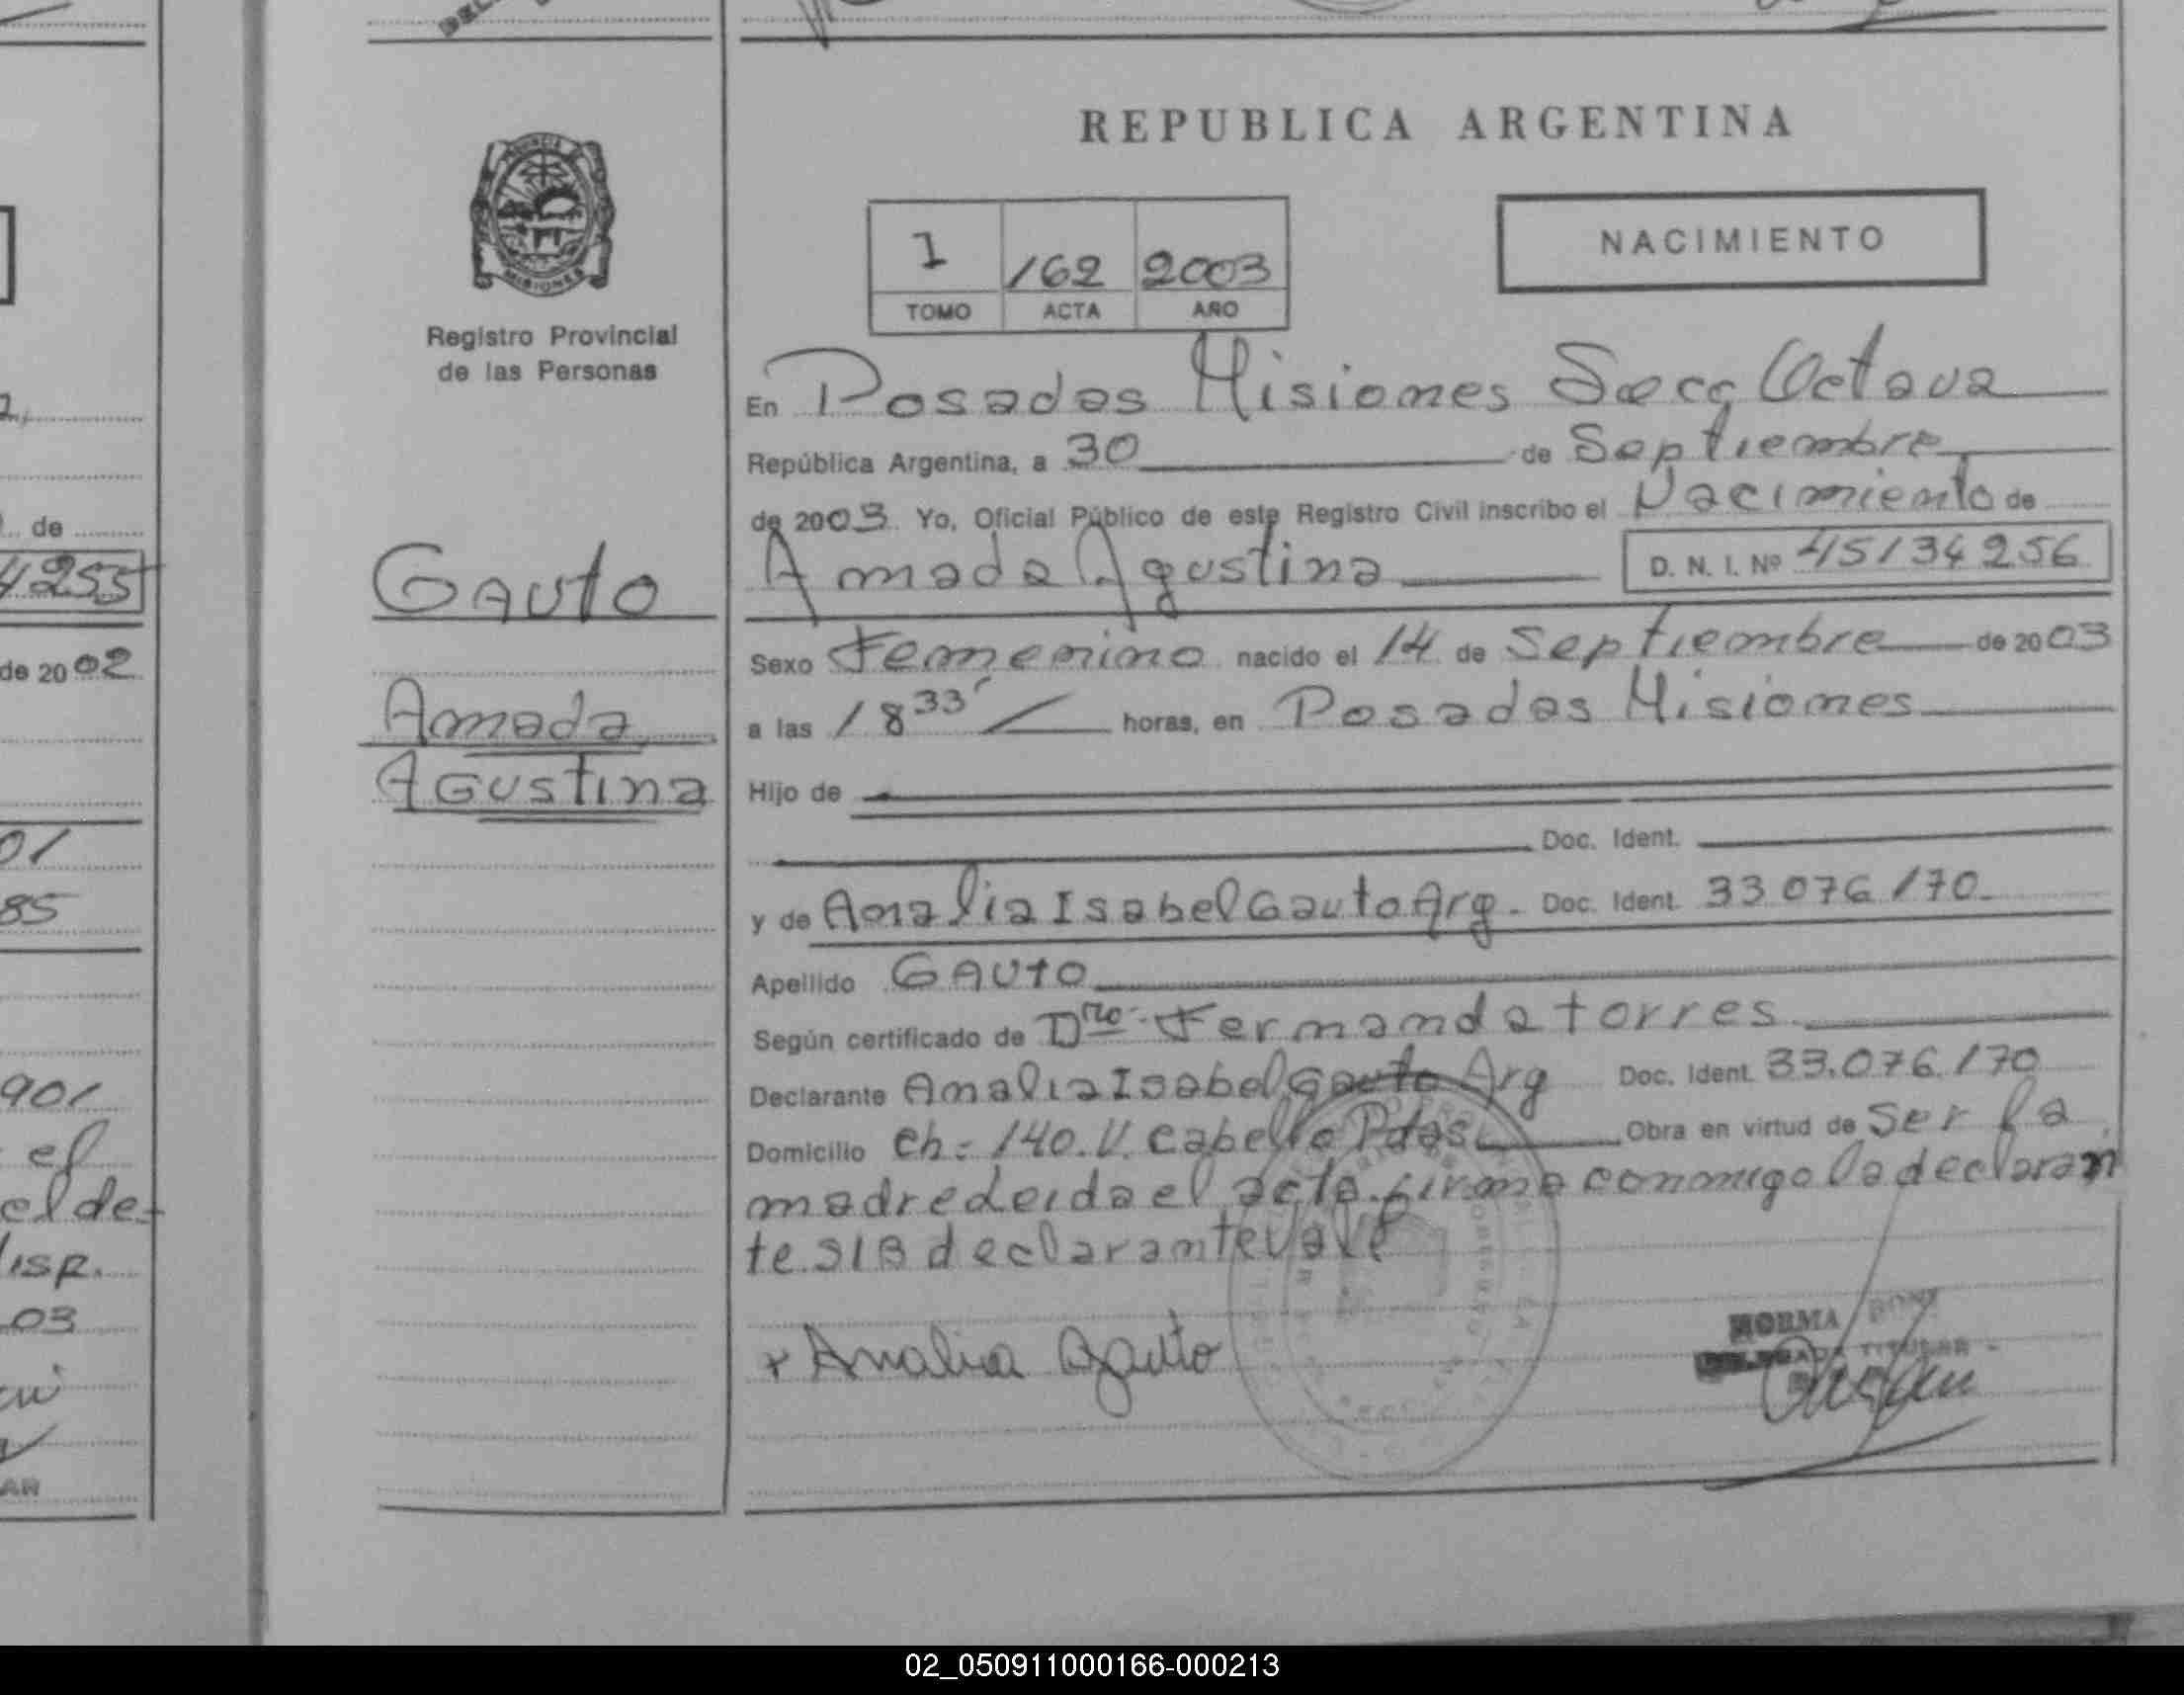 REPUBLICA ARGENTINA
NACIMIENTO
1 162 2003
TOMO ACTA AÑO
Registro Provincial
de las Personas
Gauto
Amada
Agustina
En Posadas Misiones Secc Octava
República Argentina, a 30 de Septiembre
de 2003 Yo, Oficial Público de este Registro Civil inscribo el Nacimiento de
Amada Agustina D. N. I. Nº 45134256
Sexo Femenino nacido el 14 de Septiembre de 2003
a las 18 33' horas, en Posadas Misiones
Hijo de
Doc. Ident.
y de Amalia Isabel Gauto Arg. Doc. Ident. 33 076 170
Apellido GAUTO
Según certificado de Dra. Fernanda torres
Declarante Analia Isabel Gauto Arg Doc. Ident. 33.076.170
Domicilio Ch: 140. V. Cabello Pdas Obra en virtud de Ser la
madre Leida el acta firma conmigo la declaran
te S/B declarante vale
x Analia Gauto
NORMA
TITULAR
4255
de
de 20 02
01
85
901
el
el de
03
AR
02_050911000166-000213